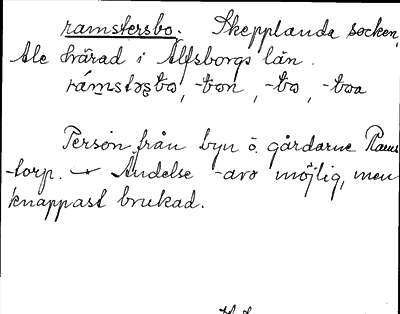 ramstersbo. Skepplanda socken,
Ale härad i Älfsborgs län.
rámstəsbo, -bon, -bo, -boa
Person från byn o. gårdarne Rams-
torp. Ändelse -are möjlig, men
knappast brukad.